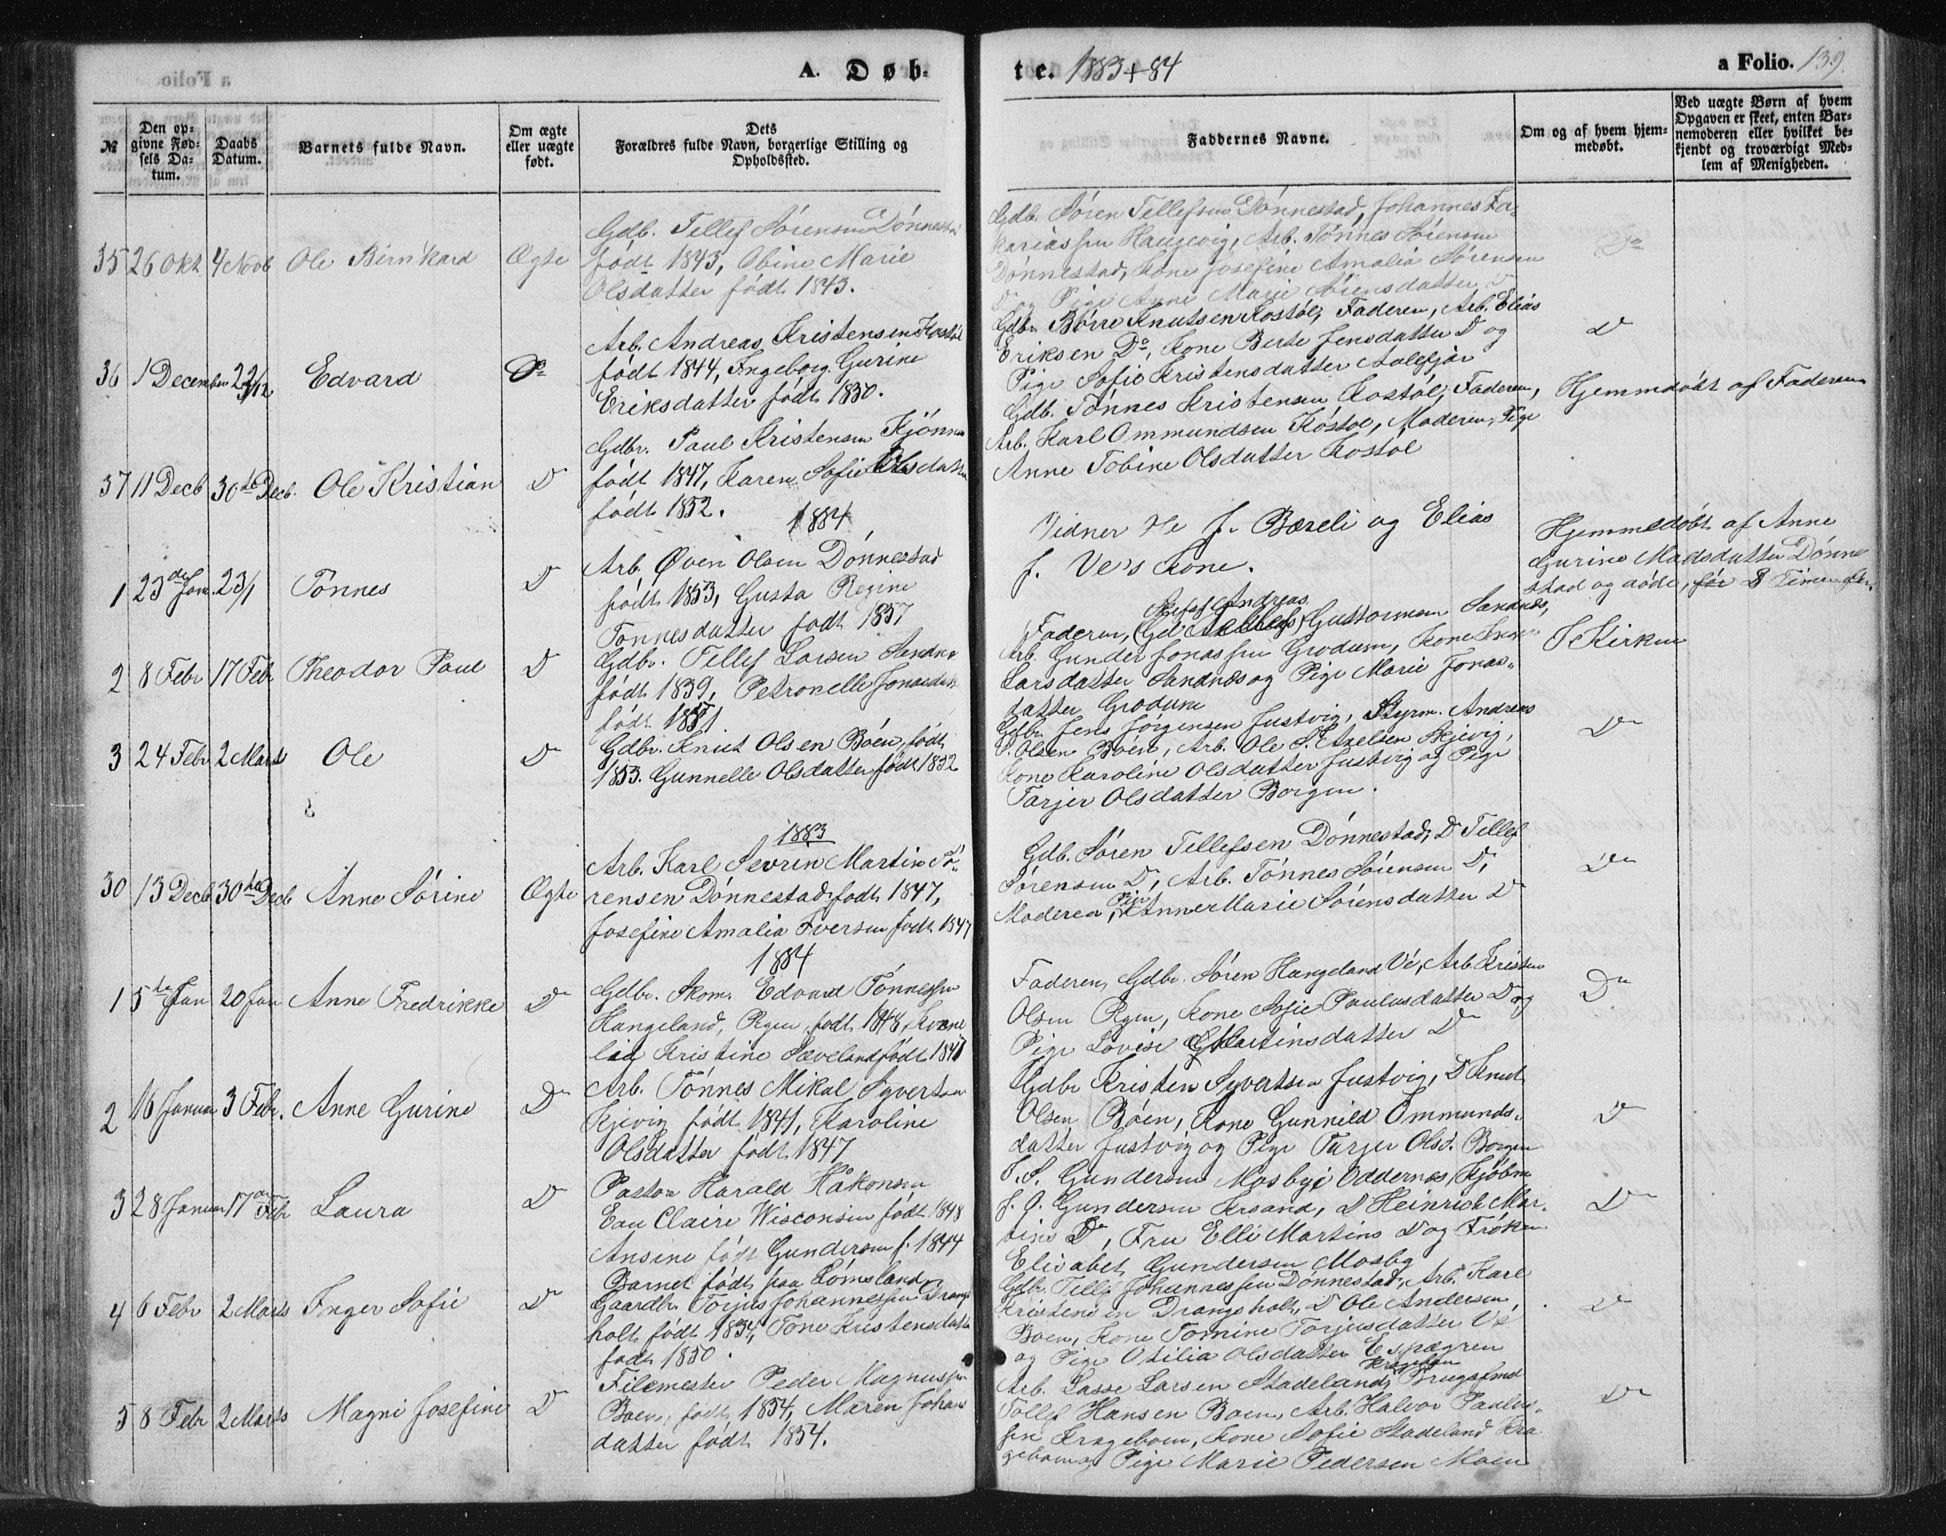 A. Døb-
te. 1883+84
a Folio. 139.
№
Den op-
givne Fød-
sels Da-
tum.
Daabs
Datum.
Barnets fulde Navn.
Om ægte
eller uægte
født.
Dets
Forældres fulde Navn, borgerlige Stilling og
Opholdssted.
Faddernes Navne.
Om og af hvem hjem-
medøbt.
Ved uægte Børn af hvem
Opgaven er skeet, enten Bar-
nemoderen eller hvilket be-
kjendt og troværdigt Med-
lem af Menigheden.
35 26 Okt 4 Novb Ole Bernhard Ægte
Gdb. Tellef Sørensen Dønnestad
født 1843, Obine Marie
Olsdatter født 1843.
Gdb. Søren Tellefsen Dønnestad, Johannes Za-
kariassen Haugevig, Arb. Tønnes Sørensen
Dønnestad, Kone Josefine Amalia Sørensen
Do og Pige Anne Marie Sørensdatter
36 1 December 22/12 Edvard Do
Arb. Andreas Kristensen Kostøl
født 1844, Ingeborg Gurine
Eriksdatter født 1850.
Gdbr. Børre Knutsen Kostøl, Faderen, Arb. Elias
Eriksen Do, Kone Berte Jensdatter D og
Pige Sofie Kristensdatter Aalefjær
D
37 11 Decb 30te Decb. Ole Kristian D
Gdbr. Paul Kristensen Kjønne
født 1847, Karen Sofie Olsdatter
født 1852.
Gdb. Tønnes Kristensen Kostøl, Faderen,
Arb. Karl Ommundsen Kostøl, Moderen, Pige
Anne Tobine Olsdatter Kostøl
Hjemmdøbt af Faderen
1884
1 23de Jan. 23/1 Tønnes D
Arb. Øven Olsen Dønnestad
født 1853, Gusta Regine
Tønnesdatter født 1857
Vidner Ve J. Bæreli og Elias
J. Ve's Kone.
Hjemmedøbt af Anne
Gurine Madsdatter Dønne
stad og døde, før 8 Timer
2 8 Febr 17 Febr Theodor Paul D
Gdbr. Tellef Larsen Sandnes
født 1839, Petronelle Jonasdat
født 1851
Andreas
Faderen, Guttormsen Sandnæs,
Arb. Gunder Jonassen Grødum, Kone
Larsdatter Sandnæs og Pige Marie Jonas-
datter Grødum
I Kirken
3 24 Febr 2 Marts Ole D
Gdbr. Knut Olsen Boen, født
1853. Gunnelle Olsdatter født 1852
Gdbr. Jens Jørgensen Justvig, Styrm. Andreas
Olsen Boen, Arb. Ole S. Axelsen Skjevig,
Kone Karoline Olsdatter Justvig og Pige
Tarjer Olsdatter Borgen.
Do
1883
30 13 Decb 30te Decb Anne Sørine Ægte
Arb. Karl Sevrin Martin Sø-
rensen Dønnestad, født 1847,
Josefine Amalia Iversen født 1847
Gdb. Søren Tellefsen Dønnestad, D Tellef
Sørensen D, Arb. Tønnes Sørensen D,
Moderen, Pige Anne Marie Sørensdatter D
Do
1884
1 5te Jan 20 Jan Anne Fredrikke Do
Gdbr. Skom. Edvard Tønnessen
Hangeland, Rgen, født 1848,
Kristine Sæveland født 1841
Faderen, Gdbr. Søren Hangeland Ve, Arb. Kristen
Olsen Rgen, Kone Sofie Paulusdatter D og
Pige Lovise Martinsdatter Do
Do
2 16 Januar 3 Febr. Anne Gurine Do
Arb. Tønnes Mikal Syvertsen
Kjevig født 1841, Karoline
Olsdatter født 1847
Gdbr Kristen Syvertsen Justvig, D Knut
Olsen Boen, Kone Gunnild Ommunds-
datter Justvig og Pige Tarjer Olsd. Borgen
D
3 28 Januar 17de Febr Laura D
Pastor Harald Håkonsen
Eau Claire Wisconsin født 1848
Ansine født Gundersen f. 1844
Barnet født paa Lømsland
T. S. Gundersen Mosby i Oddernes, Kjøbm.
J. O. Gundersen Krsand, D Heinrich Mar-
tins Do, Fru Elli Martins D og Frøken
Elisabet Gundersen Mosby
Do
4 6 Febr 2 Marts Inger Sofie D
Gaardbr. Torjus Johannessen Drangs
holt født 1834, Tone Kristensdatter
født 1850.
Gdbr. Tellef Johannessen Dønnestad, Arb. Karl
Kristensen Drangsholt, D Ole Andersen
Boen, Kone Tomine Torjusdatter Ve
og Pige Otilia Olsdatter Espegren
D
5 8 Febr 2 Marts Magni Josefine D
Filemester Peder Magnussen
Boen, født 1854, Maren Johans
datter født 1854.
Arb. Lasse Larsen Stadeland, Kragebon Brugsfmd
Tollef Hansen Boen, Arb. Halvor Paulus-
sen Krageboen, Kone Sofie Stadeland Kra
geboen, Pige Marie Pedersen Moen
Do